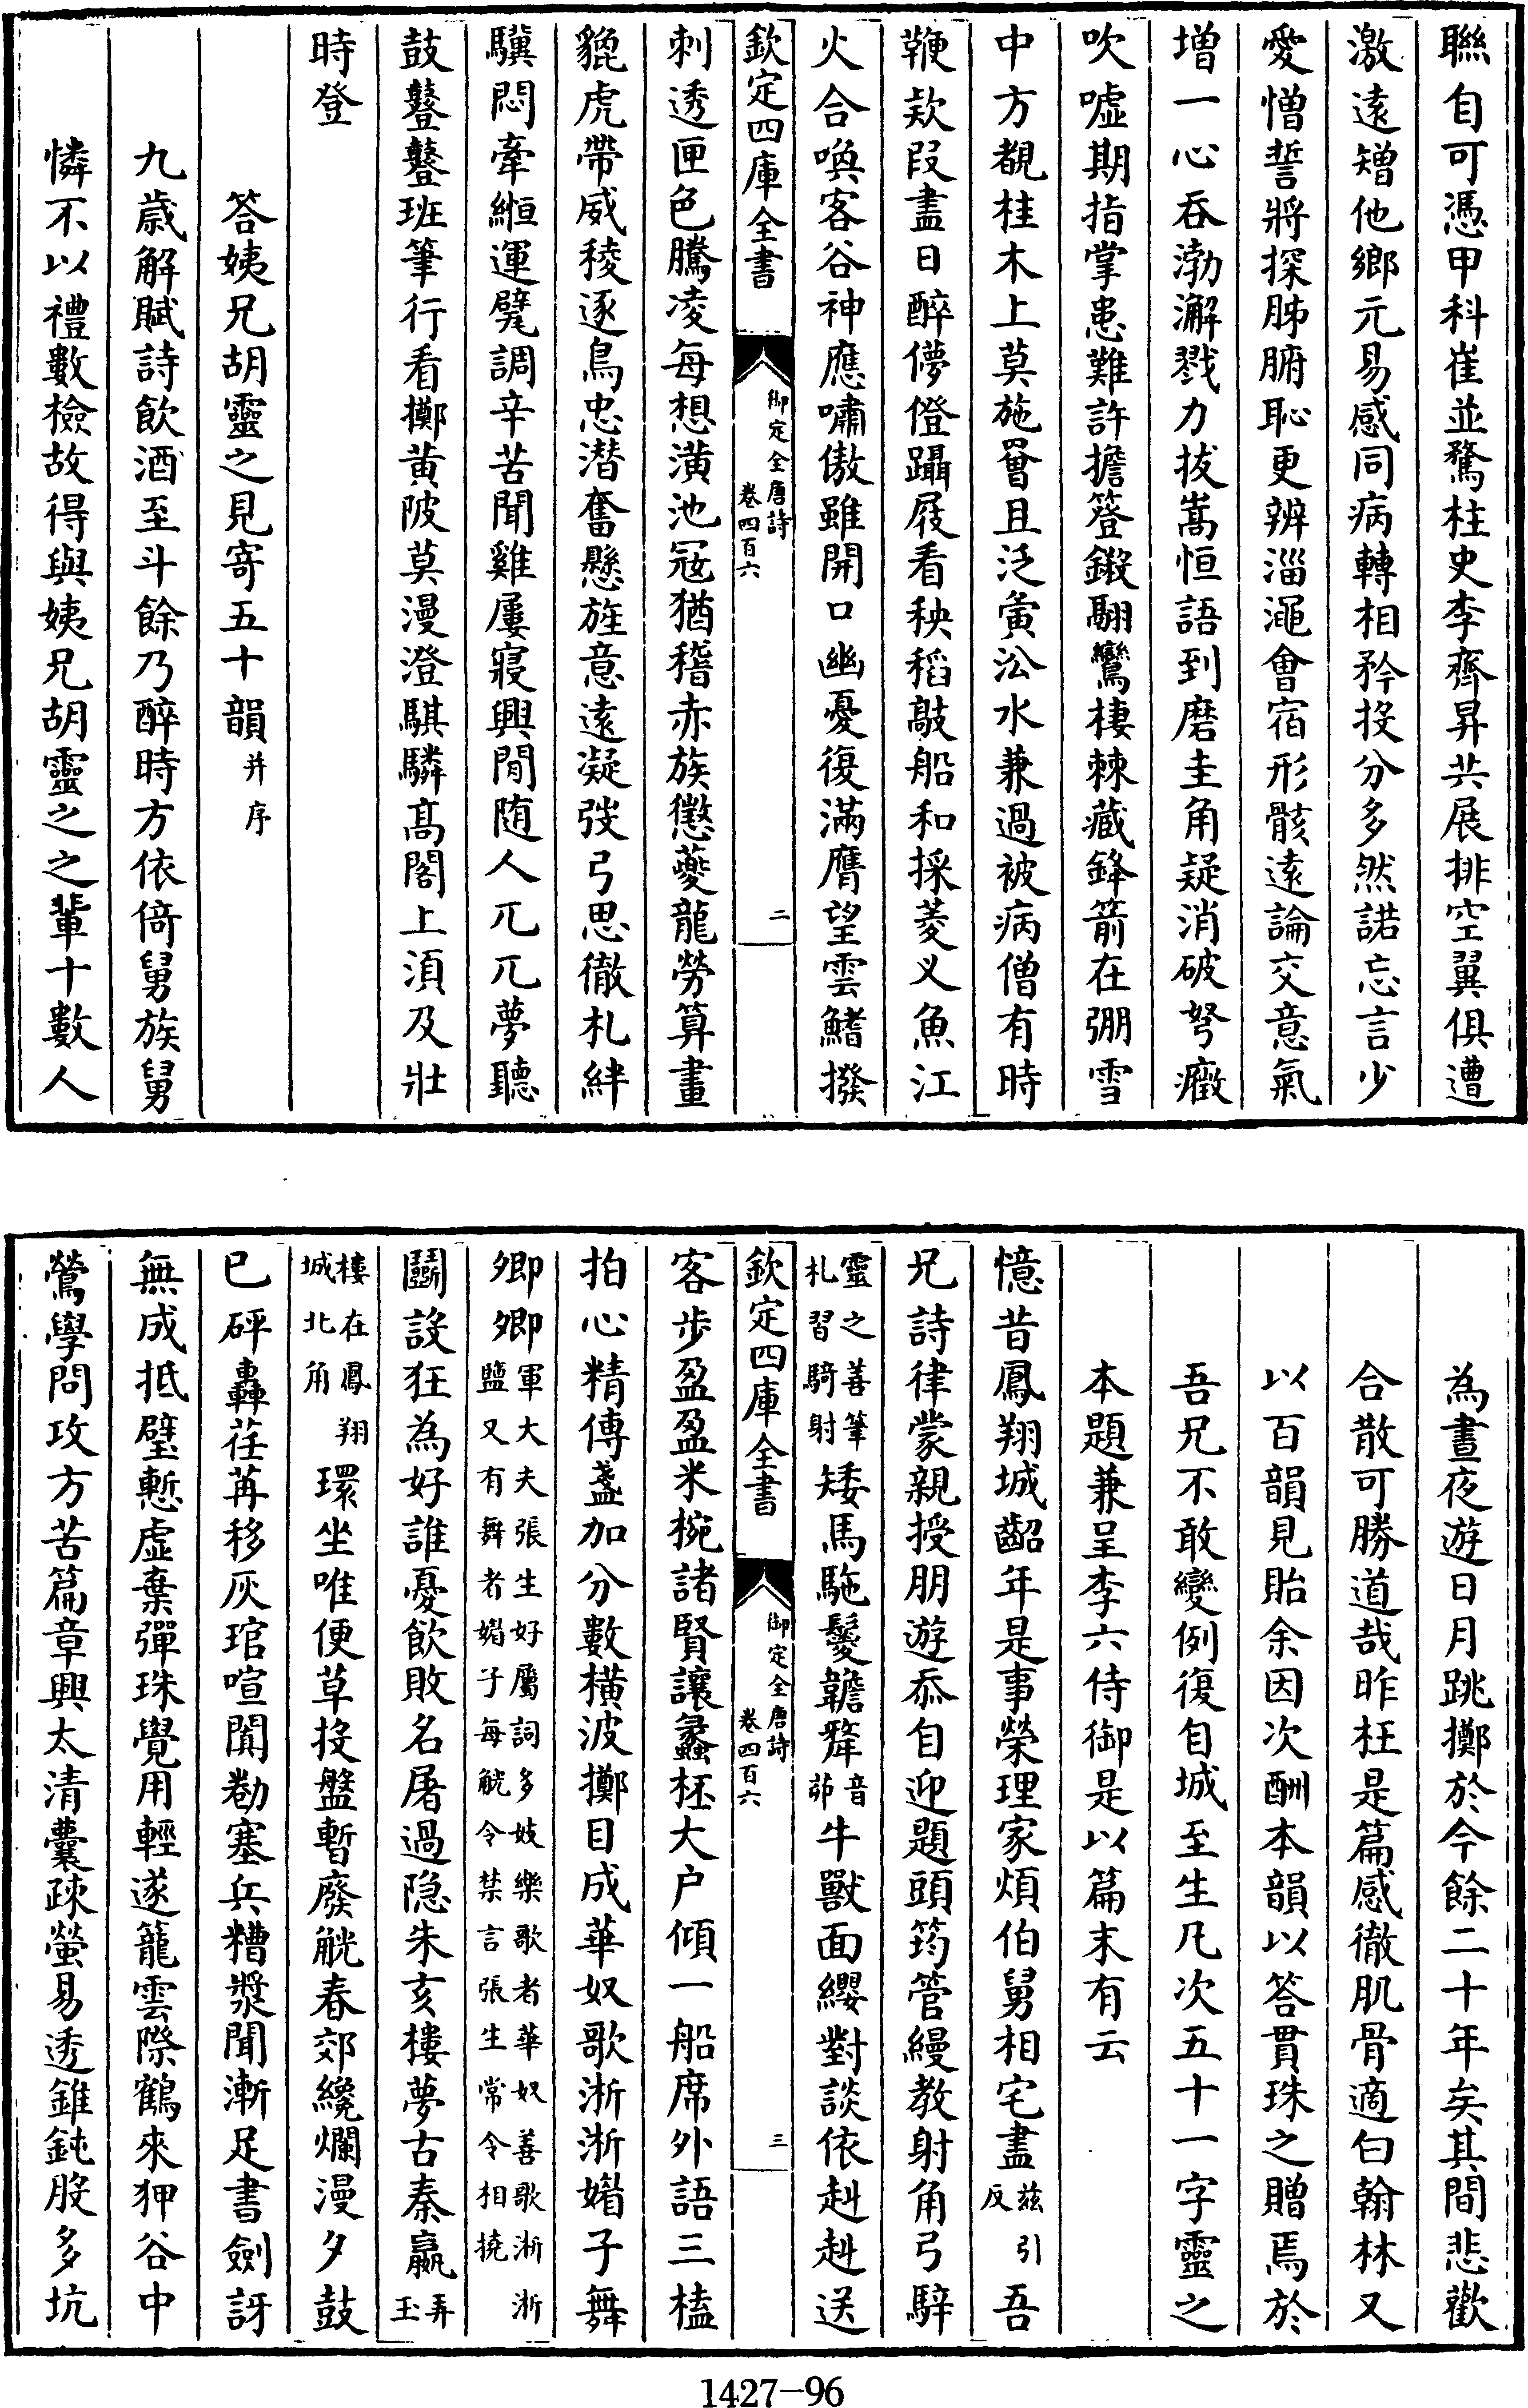 聯自可憑甲科崔並騖柱史李齊昇共展排空翼俱遭
激遠矰他鄉元易感同病轉相矜投分多然諾忘言少
愛憎誓將探肺腑恥更辨淄澠會宿形骸遠論交意氣
増一心吞渤澥戮力拔嵩恒語到磨圭角疑消破弩癥
吹噓期指掌患難許擔簦鎩翮鸞棲棘藏鋒箭在弸雪
中方覩桂木上莫施罾且泛夤㳂水兼過被病僧有時
鞭欵叚盡日醉儚僜躡屐看秧稻敲船和採菱义魚江
火合喚客谷神應嘯傲雖開口幽憂復滿膺望雲鰭撥
欽定四庫全書
御定全唐詩
卷四百六
二
刺透匣色騰凌每想潢池冦猶稽赤族懲夔龍勞算畫
貔虎帶威稜逐鳥忠潛奮懸旌意遠凝弢弓思徹札絆
驥悶牽縆運甓調辛苦聞雞屢寢興閒随人兀兀夢聽
鼓鼞鼞班筆行看擲黄陂莫漫澄騏驎髙閣上須及壯
時登
答姨兄胡靈之見寄五十韻并序
九歲解賦詩飲酒至斗餘乃醉時方依倚舅族舅
憐不以禮數檢故得與姨兄胡靈之之輩十數人
為晝夜遊日月跳擲於今餘二十年矣其間悲歡
合散可勝道哉昨枉是篇感徹肌骨適白翰林又
以百韻見貽余因次酬本韻以答貫珠之贈焉於
吾兄不敢變例復自城至生凡次五十一字靈之
本題兼呈李六侍御是以篇末有云
憶昔鳳翔城齠年是事榮理家煩伯舅相宅盡兹引反吾
兄詩律蒙親授朋遊忝自迎題頭筠管縵教射角弓騂
靈之善筆札習騎射矮馬駞鬉韂犛音茆牛獸面纓對談依赳赳送
欽定四庫全書
御定全唐詩
卷四百六
三
客步盈盈米椀諸賢讓蠡柸大户傾一船席外語三榼
拍心精傳盞加分數横波擲目成華奴歌淅淅媚子舞
卿卿軍大夫張生好屬詞多妓樂歌者華奴善歌淅淅鹽又有舞者媚子每觥令禁言張生常令相撓
鬭設狂為好誰憂飲敗名屠過隐朱亥樓夢古秦嬴弄玉
樓在鳳翔城北角環坐唯便草投盤暫廢觥春郊纔爛漫夕鼓
已砰轟荏苒移灰琯喧闐勌塞兵糟漿聞漸足書劍訝
無成抵璧慙虛棄彈珠覺用輕遂籠雲際鶴來狎谷中
鶯學問攻方苦篇章興太清囊疎螢易透錐鈍股多坑
1427-96